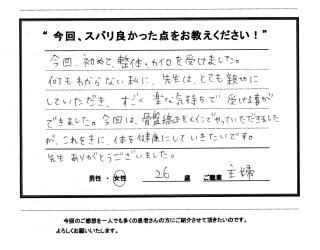 “今回、スバリ良かった点をお教えください！”
今回、初めて、整体・カイロを受けました。
何もわからない私に、先生は、とても親切に
していただき、すごく楽な気持ちで受ける事が
できました。今回は、骨盤矯正をメインでやっていただきました
が、これをきに、体を健康にしていきたいです。
先生ありがとうございました。
男性・女性 26 歳 ご職業 主婦
今回のご感想を一人でも多くの患者さんの方にご紹介させて頂きたいのです。
よろしくお願いいたします。